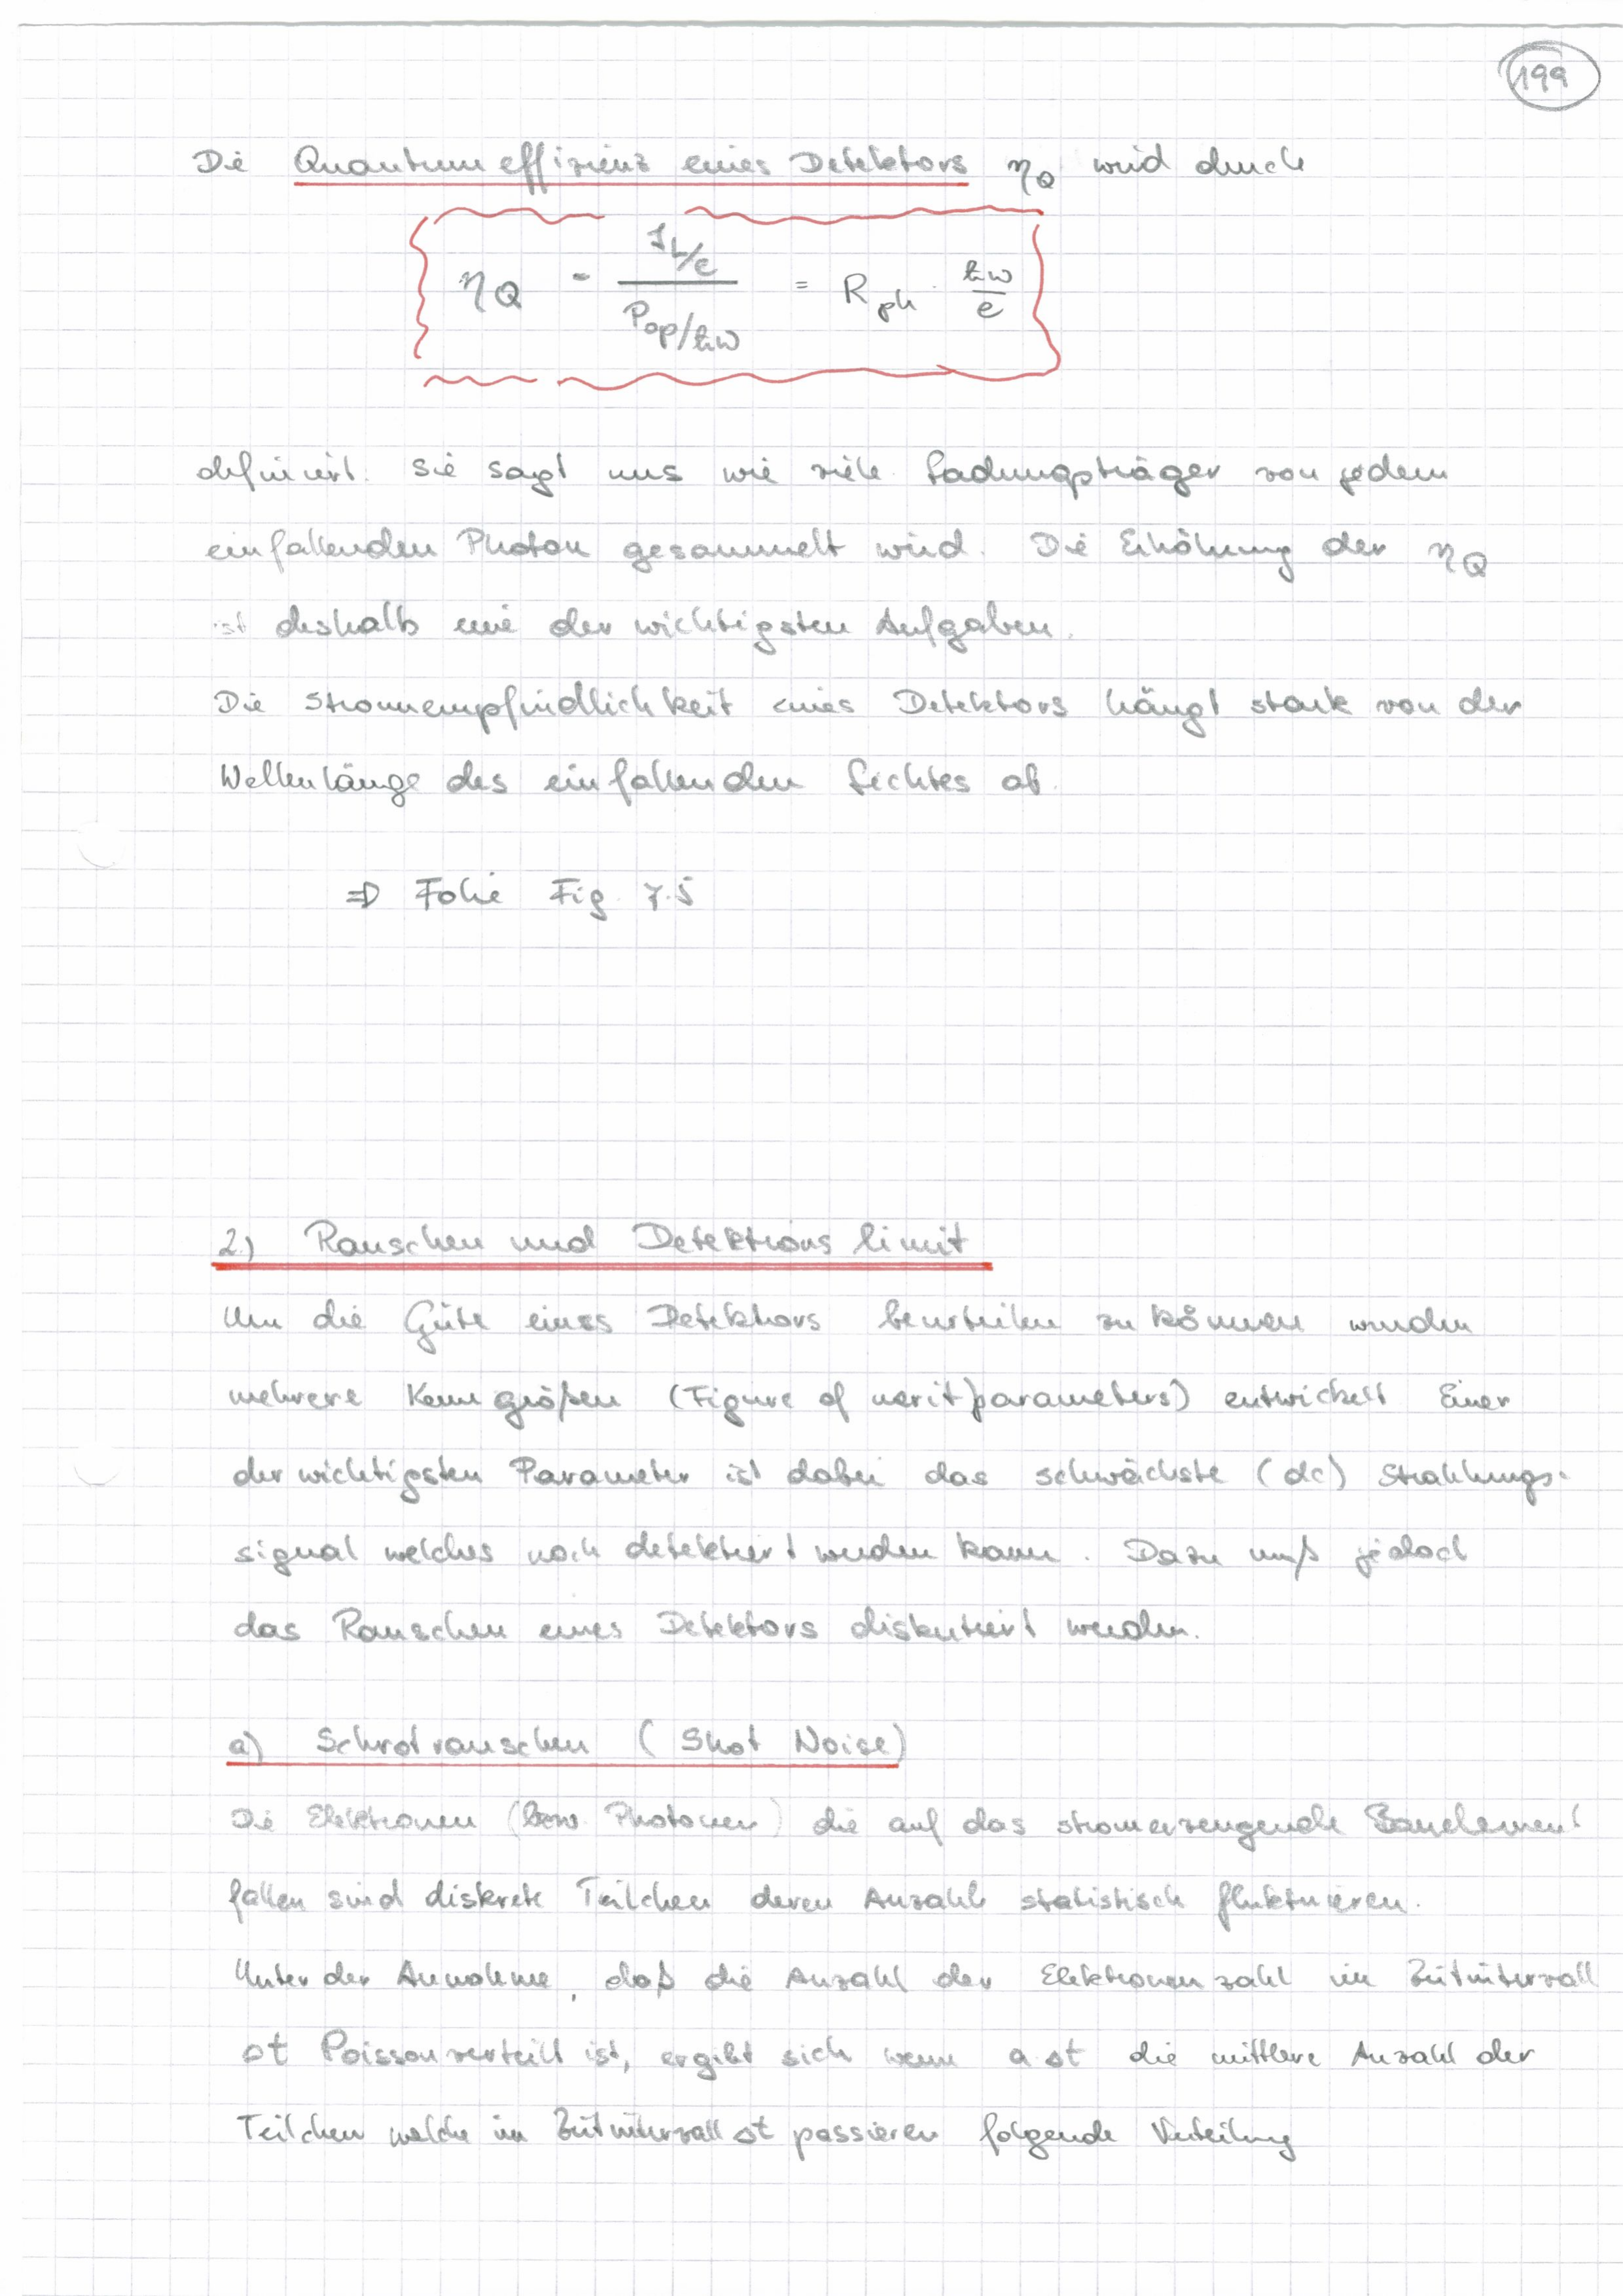 199
Die Quantumeffizienz eines Detektors η_Q wird durch
η_Q = (I_L/e) / (P_op/ħω) = R_ph · ħω/e
definiert. Sie sagt uns wie viele Ladungsträger von jedem
einfallenden Photon gesammelt wird. Die Erhöhung der η_Q
ist deshalb eine der wichtigsten Aufgaben.
Die Stromempfindlichkeit eines Detektors hängt stark von der
Wellenlänge des einfallenden Lichtes ab.
⇒ Folie Fig. 7.5
2.) Rauschen und Detektionslimit
Um die Güte eines Detektors beurteilen zu können wurden
mehrere Kenngrößen (Figure of merit parameters) entwickelt Einer
der wichtigsten Parameter ist dabei das schwächste (dc) Strahlungs-
signal welches noch detektiert werden kann. Dazu muß jedoch
das Rauschen eines Detektors diskutiert werden.
a) Schrotrauschen (Shot Noise)
Die Elektronen (bzw. Photonen) die auf das stromerzeugende Bauelement
fallen sind diskrete Teilchen deren Anzahl statistisch fluktuieren.
Unter der Annahme, daß die Anzahl der Elektronenzahl im Zeitintervall
Δt Poissonverteilt ist, ergibt sich wenn a Δt die mittlere Anzahl der
Teilchen welche im Zeitintervall Δt passieren folgende Verteilung